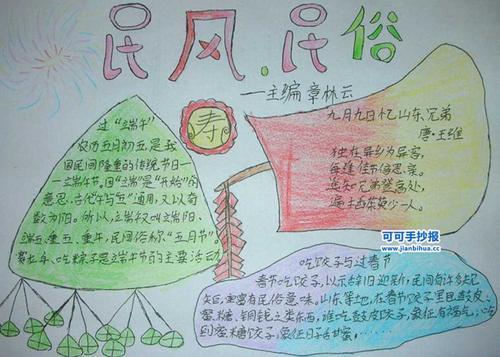 民风.民俗
—主编 章林云
过“端午”
农历五月初五是我
国民间隆重的传统节日—
—端午节。因“端”是“开始”的
意思，古代午与五”通用，又以奇
数为阳。所以，端午节又叫端阳、
端五、重五、重午，民间俗称“五月节”。
赛龙舟、吃粽子是端午节的主要活动
寿
九月九日忆山东兄弟
唐:王维
独在异乡为异客，
每逢佳节倍思亲。
遥知兄弟登高处，
遍插茱萸少一人。
可可手抄报
www.jianbihua.cc
吃饺子与过春节
春节吃饺子，以示辞旧迎新，民间有许多记
载，也富有民俗意味。山东等地，在春节饺子里包麸皮、
蜜、糖、铜钱之类东西，谁吃麸皮饺子，象征有福气，吃
到蜜糖饺子，象征日子甜蜜，……